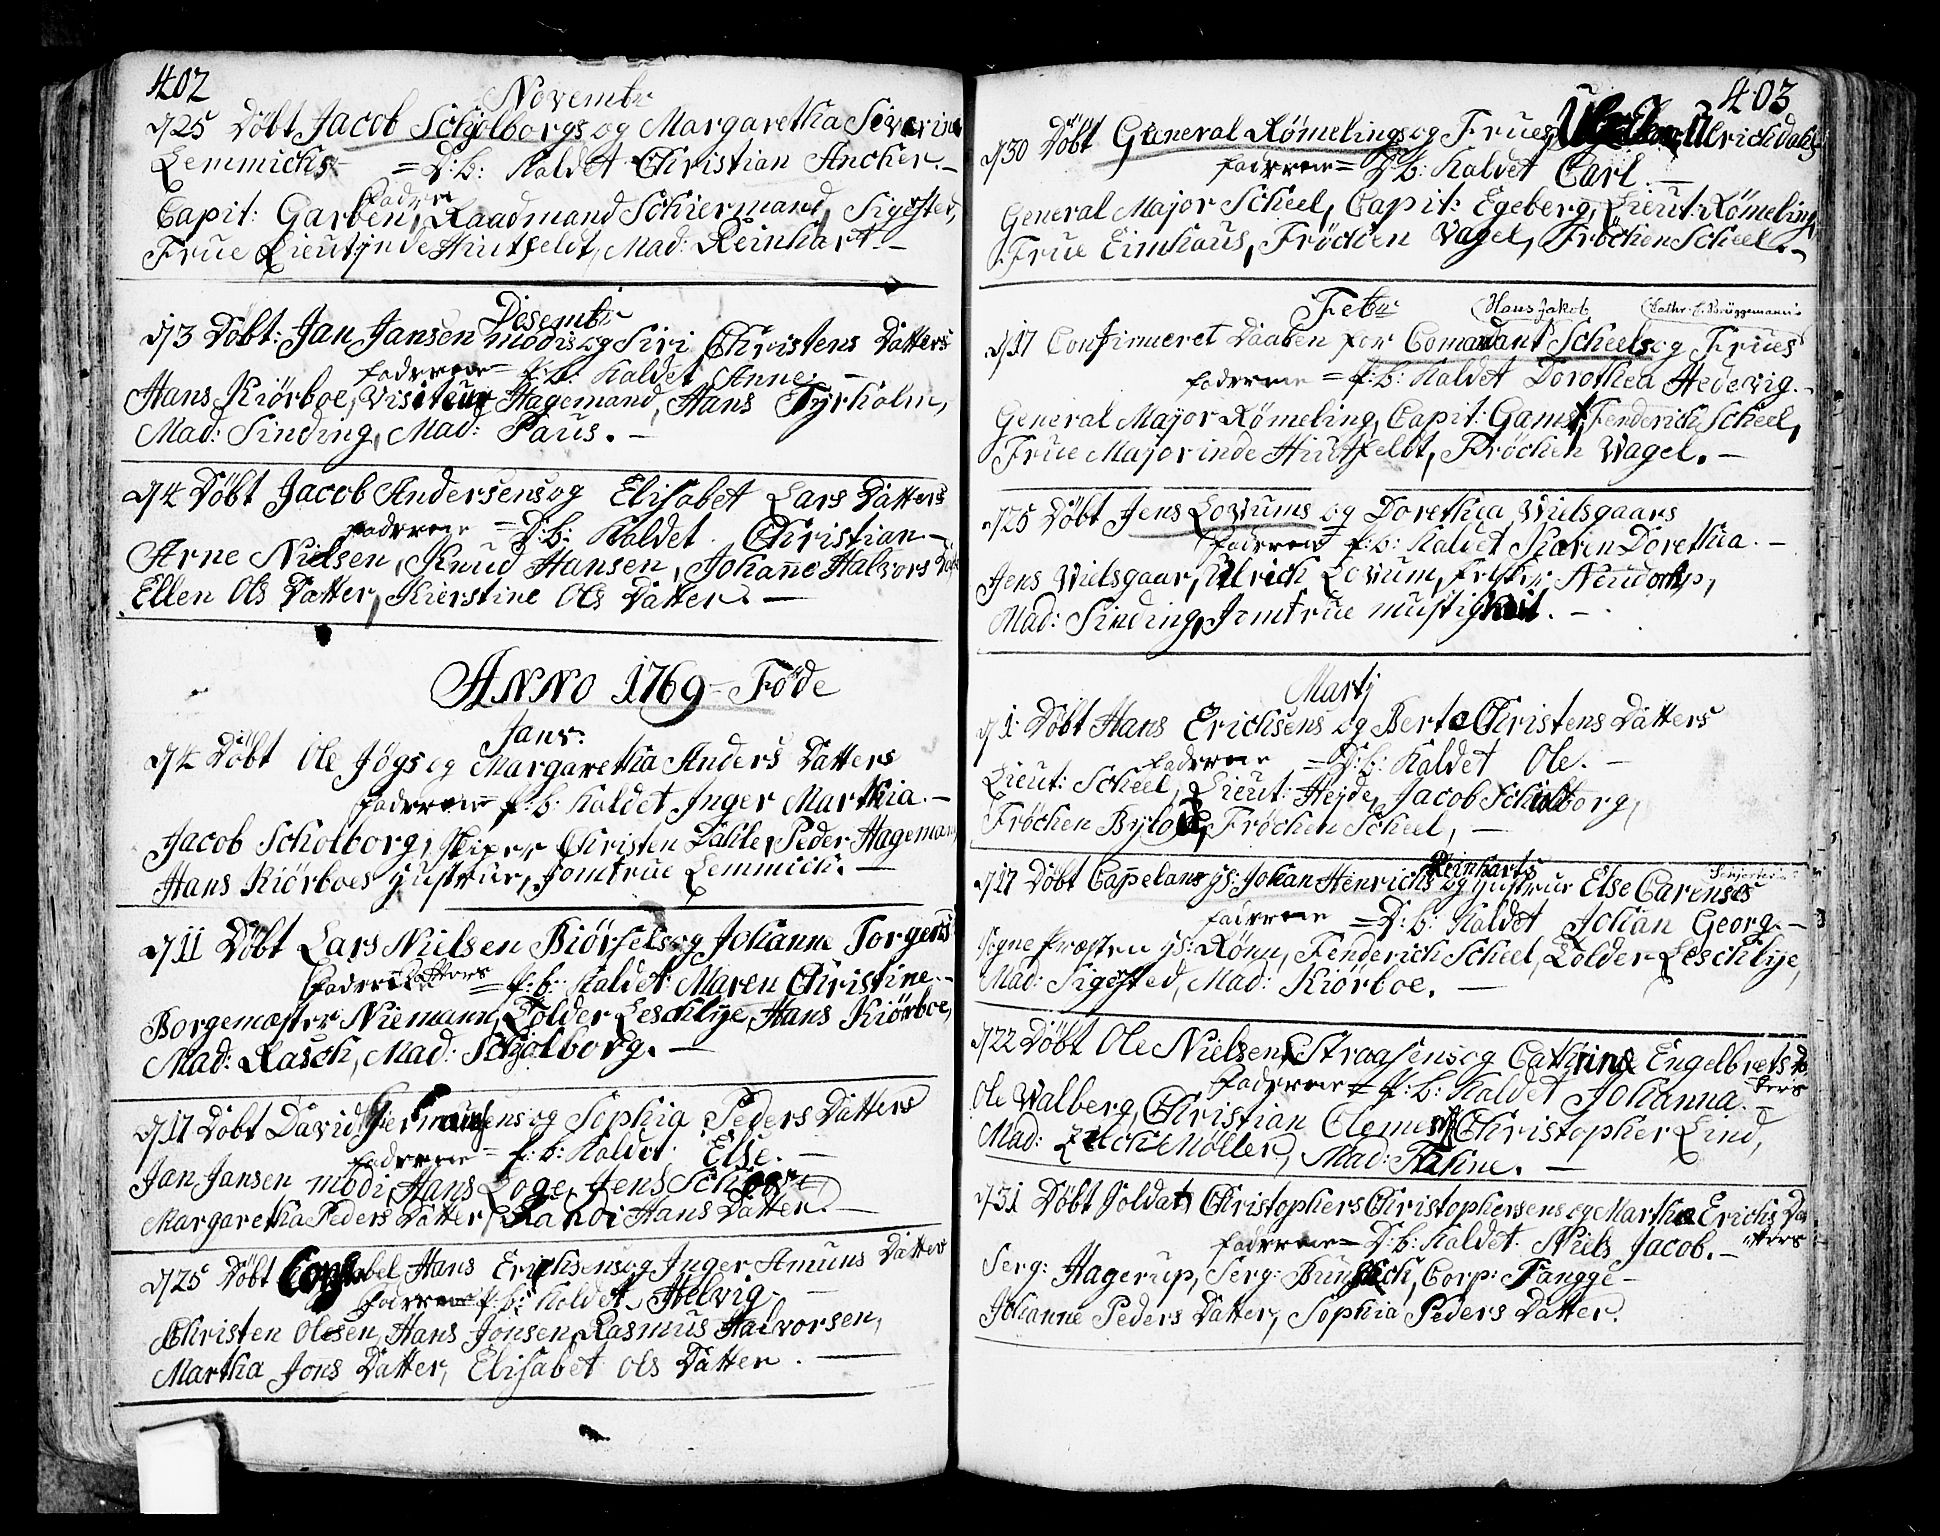 402
Novembr
d/25 Döbt Jacob Schjolborgs og Margaretha Severine
Lemmichs = D: b: Kaldet Christian Ancher. –
Faddere
Capit: Garben, Raadmand Schiermand, Sigested,
Frue Lieutjnde Huitfeldt, Mad: Reinhart. –
Desembr
d/3 Döbt: Jan Jansen modis og Siri Christens Datters
Fadderne = p: b: Kaldet Anne. –
Hans Kiörboe, Visiteur Hagemand, Hans Tyrholm,
Mad: Sinding, Mad: Paus. –
d/4 Döbt Jacob Andersens og Elisabet Lars Datters
Fadderne = D: b: Kaldet Christian –
Arne Nielsen, Knud Hansen, Johanne Halvors Datter
Ellen Ols Datter, Kierstine Ols Datter. –
Anno 1769 = Föde
Janv:
d/4 Döbt Ole Jögs og Margaretha Anders Datters
Fadderne p: b: Kaldet Inger Marthia. –
Jacob Scholborg, Skiper Christen Dahle, Peder Hageman,
Hans Kiörboes Hustrue, Jomfrue Lemmich. –
d/11 Döbt Lars Nielsen Biörsels og Johanne Torgers
Datters
Fadderne = p: b: Kaldet Maren Christine. –
Borgemæster Niemann, Tolder Leschlye, Hans Kiörboe,
Mad: Rasch, Mad: Schjolborg. –
d/17 Döbt David Hermansens og Sophia Peders Datters
Fadderne = p: b: Kaldet Else. –
Jan Jansen modi, Hans Loge, Jens
Margaretha Peders Datter, Randi Hans Datter. –
d/25 Döbt Constabel Hans Erichsens og Inger Amuns Datter
Fadderne p: b: Kaldet Helvig. –
Christen Olesen, Hans Jonsen, Rasmus Halvorsen,
Martha Jons Datter, Elisabet Ols Datter. –
403
d/30 Döbt General Römelings og Frues Ulrichdahls
Fadderne = D: b: Kaldet Carl. –
General Major Scheel, Capit: Egeberg, Lieut: Römeling,
Frue Eimhaus, Fröchen Vagel, Fröchen Scheel. –
Febr
Hans Jakob
Cathr. E. Brüggemann's
d/17 Confirmeret Daaben for Comandant Scheels og Frues
Fadderne = p: b: Kaldet Dorothea Hedevig. –
General Major Römeling, Capit: Gams, Fenderich Scheel,
Frue Majorinde Huitfeldt, Fröchen Vagel. –
d/25 Döbt Jens Lovums og Dorethea Vielsgaars
Fadderne p: b: Kaldet Karen Dorethia. –
Jens Vielsgaar, Ulrich Lovum, Neudorp,
Mad: Sinding, Jomfrue –
Martj
d/1 Döbt Hans Erichsens og Berte Christens Datters
Fadderne = D: b: Kaldet Ole. –
Lieut: Scheel, Lieut: Heyde, Jacob Schiolborg,
Fröchen Bylo, Fröchen Scheel, –
d/17 Döbt Capelans Hs: Johan Henrichs Reinharts og Hustrue Else Carenses
Fadderne = D: b: Kaldet Johan Georg. –
Sogne Præsten Hs: Rönn, Fenderich Scheel, Tolder Leschlye,
Mad: Sigested, Mad: Kiörboe. –
d/22 Döbt Ole Nielsen Straasens og Cathrine Engelbrets Datters
Fadderne = p: b: Kaldet Johanna. –
Ole Walberg, Christian Clemess, Christopher Lind,
Mad: Möller, Mad: –
d/31 Döbt Soldat Christophers Christophersens og Martha Erichs Datters
Fadderne = D: b: Kaldet Niels Jacob. –
Serg: Hagerup, Serg: , Corp: Tangge –
Johanne Peders Datter, Sophia Peders Datter.